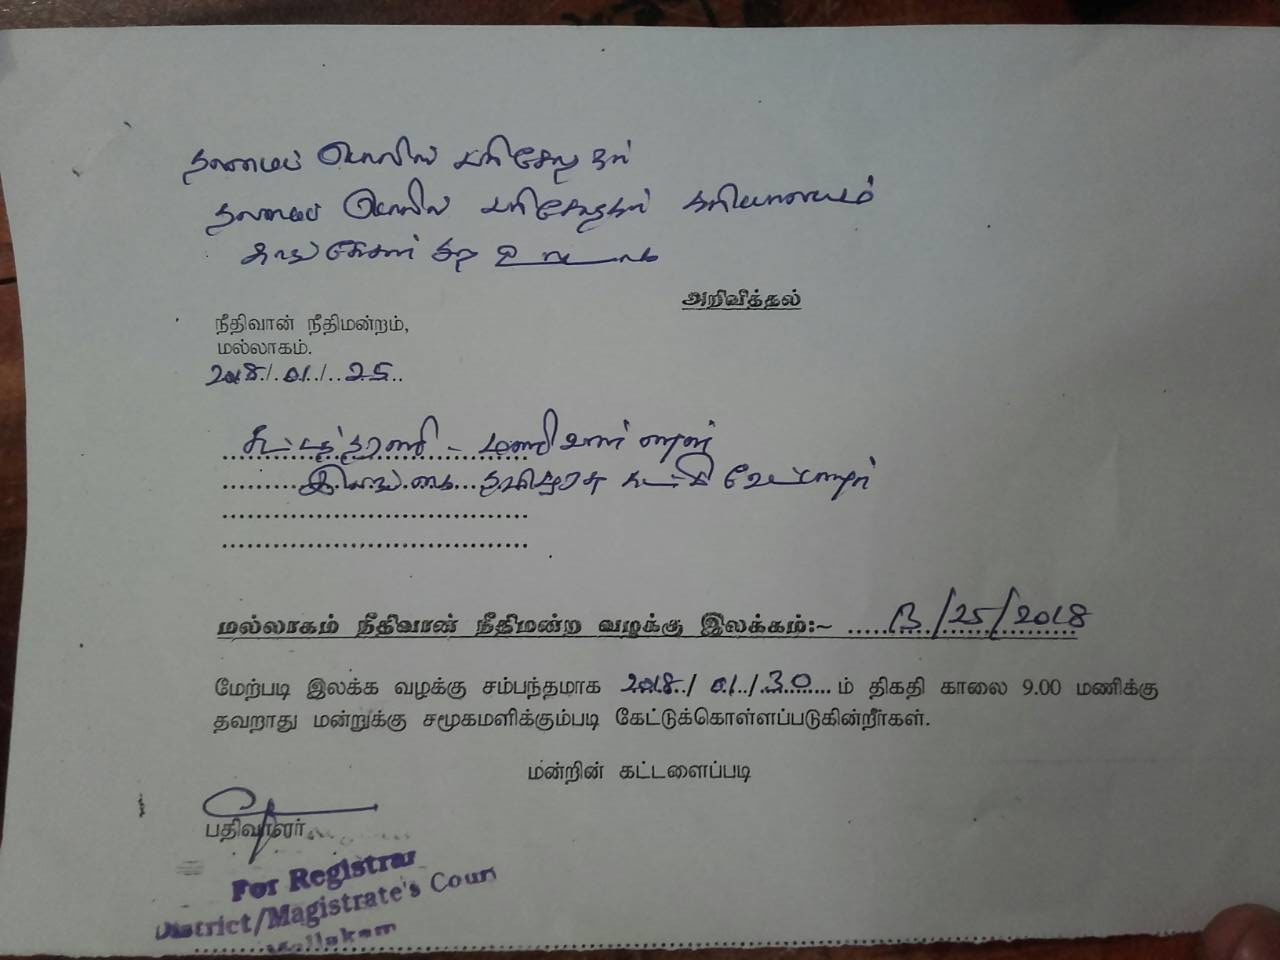 தலைமைப் பொலிஸ் பரிசோதகர்
தலைமைப் பொலிஸ் பரிசோதகர் காரியாலயம்
காங்கேசன்துறை
அறிவித்தல்
நீதிவான் நீதிமன்றம்,
மல்லாகம்.
2018/.01./..25..
சட்டத்தரணி - மணிவண்ணன்
இலங்கை தமிழரசு கட்சி வேட்பாளர்
மல்லாகம் நீதிவான் நீதிமன்ற வழக்கு இலக்கம்:- B/25/2018
மேற்படி இலக்க வழக்கு சம்பந்தமாக 2018/01/30 ம் திகதி காலை 9.00 மணிக்கு
தவறாது மன்றுக்கு சமூகமளிக்கும்படி கேட்டுக்கொள்ளப்படுகின்றீர்கள்.
மன்றின் கட்டளைப்படி
பதிவாளர்
For Registrar
District/Magistrate's Court
Mallakam